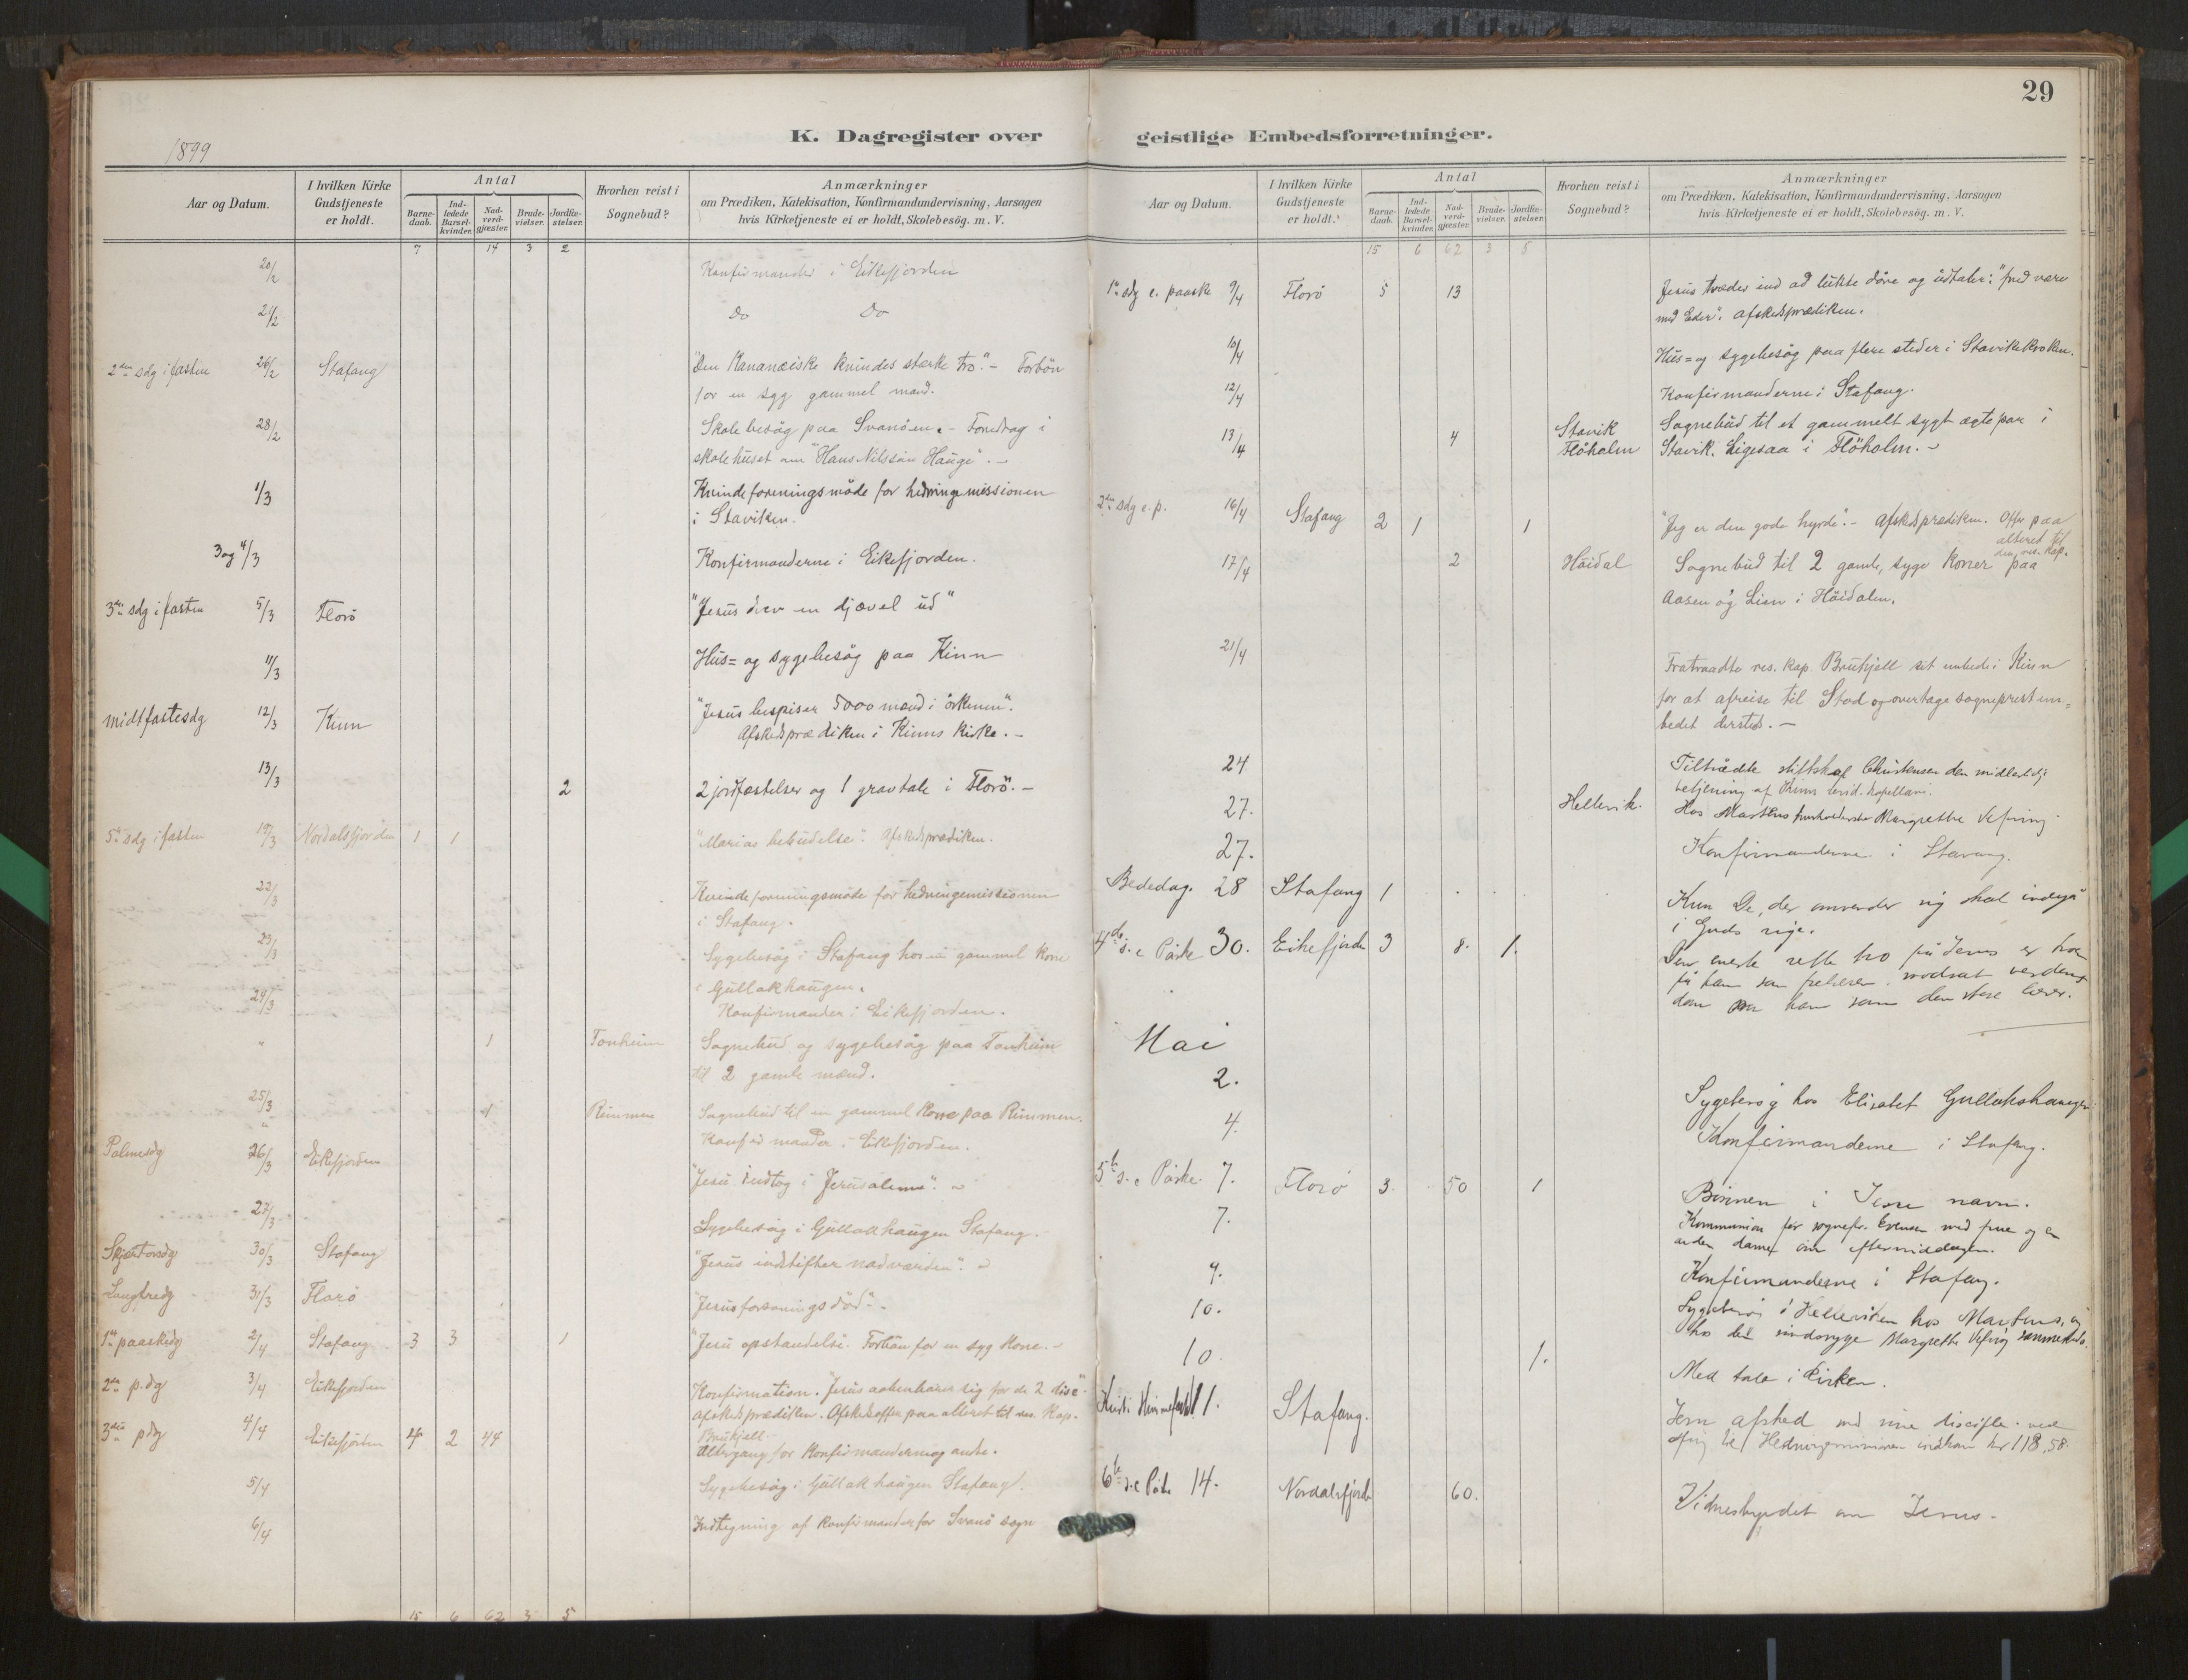 29
K. Dagregister over geistlige Embedsforretninger.
1899
Aar og Datum.
I hvilken Kirke Gudstjeneste er holdt.
Antal
Barne-daab.
Ind-ledede Barsel-kvinder.
Nad-verd-gjæster.
Brude-vielser.
Jordfæ-stelser.
Hvorhen reist i Sognebud?
Anmærkninger
om Prædiken, Katekisation, Konfirmandundervisning, Aarsagen
hvis Kirketjeneste ei er holdt, Skolebesög. m. V.
7 14 3 2
20/2 Konfirmander i Eikefjorden
21/2 Do Do
2den sdg i fasten 26/2 Stafang "Den Kananæiske kvindes stærke tro". - Forbön
for en syg gammel mand.
28/2 Skolebesög paa Svanöen. - Foredrag i
skolehuset om "Hans Nilssön Hauge". -
1/3 Kvindeforeningsmöde for hedningemissionen
i Staviken.
3 og 4/3 Konfirmanderne i Eikefjorden.
3die sdg i fasten 5/3 Florö "Jesus drev en djævel ud"
11/3 Hus= og sygebesög paa Kinn
midtfastesdg 12/3 Kinn "Jesus bespiser 5000 mænd i örkenen".
Afskedsprædiken i Kinns kirke. -
13/3 2 2 jordfæstelser og 1 gravtale i Florö. -
5te sdg i fasten 19/3 Nordalsfjorden 1 1 "Marias bebudelse". Afskedsprædiken.
22/3 Kvindeforeningsmöde for hedningemissionen
i Stafang.
23/3 Sygebesög i Stafang hos en gammel kone
i Gullakhaugen.
24/3 Konfirmander i Eikefjorden.
" 1 Tonheim Sognebud og sygebesög paa Tonheim
til 2 gamle mænd.
25/3 1 Rimmen Sognebud til en gammel kone paa Rimmen.
" Konfirmander i Eikefjorden.
Palmesdg 26/3 Eikefjorden "Jesu indtog i Jerusalem".
27/3 Sygebesög i Gullakhaugen Stafang.
Skjærtorsdg 30/3 Stafang "Jesus indstifter nadverden".
Langfredg 31/3 Florö "Jesu forsoningsdöd".
1ste paaskedg 2/4 Stafang 3 3 1 "Jesu opstandelse. Forbön for en syg kone. -
2den p.dg 3/4 Eikefjorden Konfirmation. Jesus aabenbarer sig for de 2 disc."
Afskedsprædiken. Afskedsoffer paa alteret til res. Kap.
Brukjell.
3die pdg 4/4 Eikefjorden 4 2 44 Altergang for konfirmanderne og andre.
5/4 Sygebesög i Gullakhaugen Stafang.
6/4 Indtegning af konfirmander for Svanö sogn
15 6 62 3 5
Aar og Datum.
I hvilken Kirke Gudstjeneste er holdt.
Antal
Barne-daab.
Ind-ledede Barsel-kvinder.
Nad-verd-gjæster.
Brude-vielser.
Jordfæ-stelser.
Hvorhen reist i Sognebud?
Anmærkninger
om Prædiken, Katekisation, Konfirmandundervisning, Aarsagen
hvis Kirketjeneste ei er holdt, Skolebesög. m. V.
15 6 62 3 5
1ste sdg e. paaske 9/4 Florö 5 13 Jesus træder ind ad lukte döre og udtaler: "fred være
med Eder". Afskedsprædiken.
10/4 Hus= og sygebesög paa flere steder i Stavikekroken.
12/4 Konfirmanderne i Stafang.
13/4 4 Stavik Flöholm Sognebud til et gammelt sygt ægtepar i
Stavik. Ligesaa i Flöholm. -
2den sdg e.p. 16/4 Stafang 2 1 1 "Jeg er den gode hyrde". - Afskedsprædiken. Offer paa
alteret til
den res. Kap.
17/4 2 Höidal Sognebud til 2 gamle, syge koner paa
Aasen og Lien i Höidalen.
21/4 Fratraadte res. kap. Brukjell sit embede i Kinn
for at afreise til Stod og overtage sogneprestem=
bedet dersteds. -
24 Tiltrådte stiftskap Christensen den midlertidige
betjening af Kinns resid. kapellani.
27. Hellevik. Hos Martens husholderske Margrethe Vefring
27. Konfirmanderne i Stavang.
Bededag. 28 Stafang 1 Kun De, der omvender sig skal indgå
i Guds rige.
4de s. e Påske 30. Eikefjorde 3 8. 1. Den eneste rette tro på Jesus er troen
på ham som frelseren modsat verdens
dom om ham som den store lærer.
Mai
2. Sygebesøg hos Elisabet Gullakshaugen.
4. Konfirmanderne i Stafang.
5te s. e Påske. 7. Florø 3. 50 1 Bønnen i Jesu navn.
7. Kommunion for sognepr. Evensen med frue og en
anden dame om eftermiddagen.
9. Konfirmanderne i Stafang.
10. Sygebesøg i Helleviken hos Martens, og
hos den sindssyge Margrethe Vefring sammesteds.
10. 1. Med tale i kirken.
Kristi Himmelfart 11. Stafang. Jesu afsked med sine disciple. ved
ofring til Hedningemissionen indkom kr 118,58.
6te s.e Påske 14. Nordalsfjord 60. Vidnesbyrdet om Jesus.